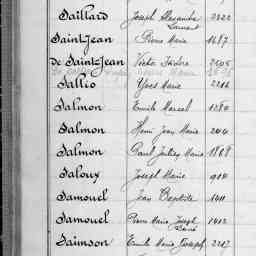 Saillard Joseph Alexandre 2522
Laurent
Saint Jean Pierre Marie 1687
de Saint Jean Victor Isidore 2505
Sallio Yves Marie 2216
Salmon Emile Marcel 1280
Salmon Henri Jean Marie 244
Salmon Paul Julien Marie 1868
Saloux Joseph Marie 914
Samouel Jean Baptiste 1411
Samouel Pierre Marie Joseph 1412
René
Saimson Emile Marie Joseph 2217